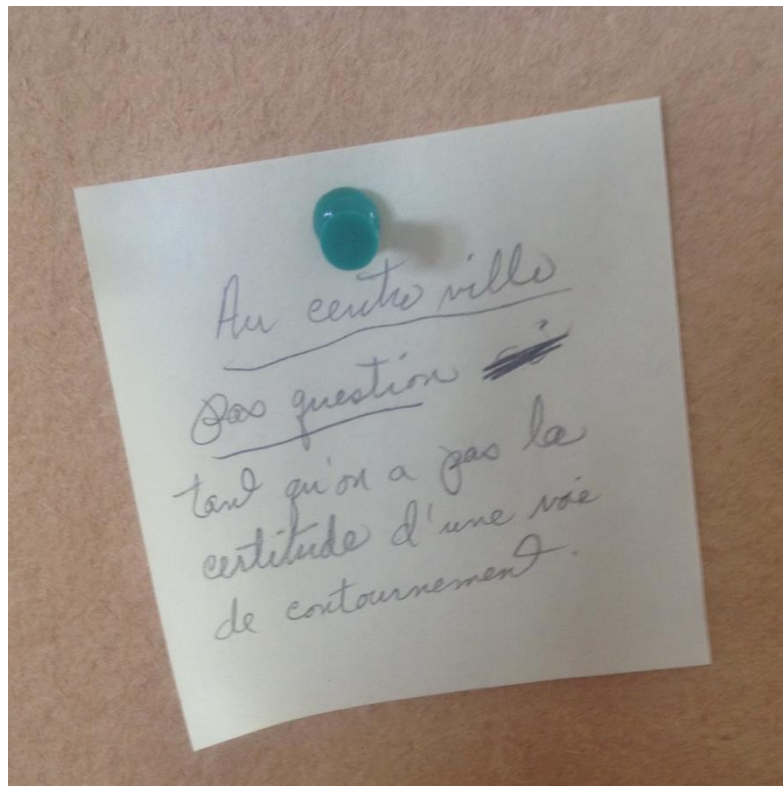 Au centre ville
pas question
tant qu'on a pas la
certitude d'une voie
de contournement.